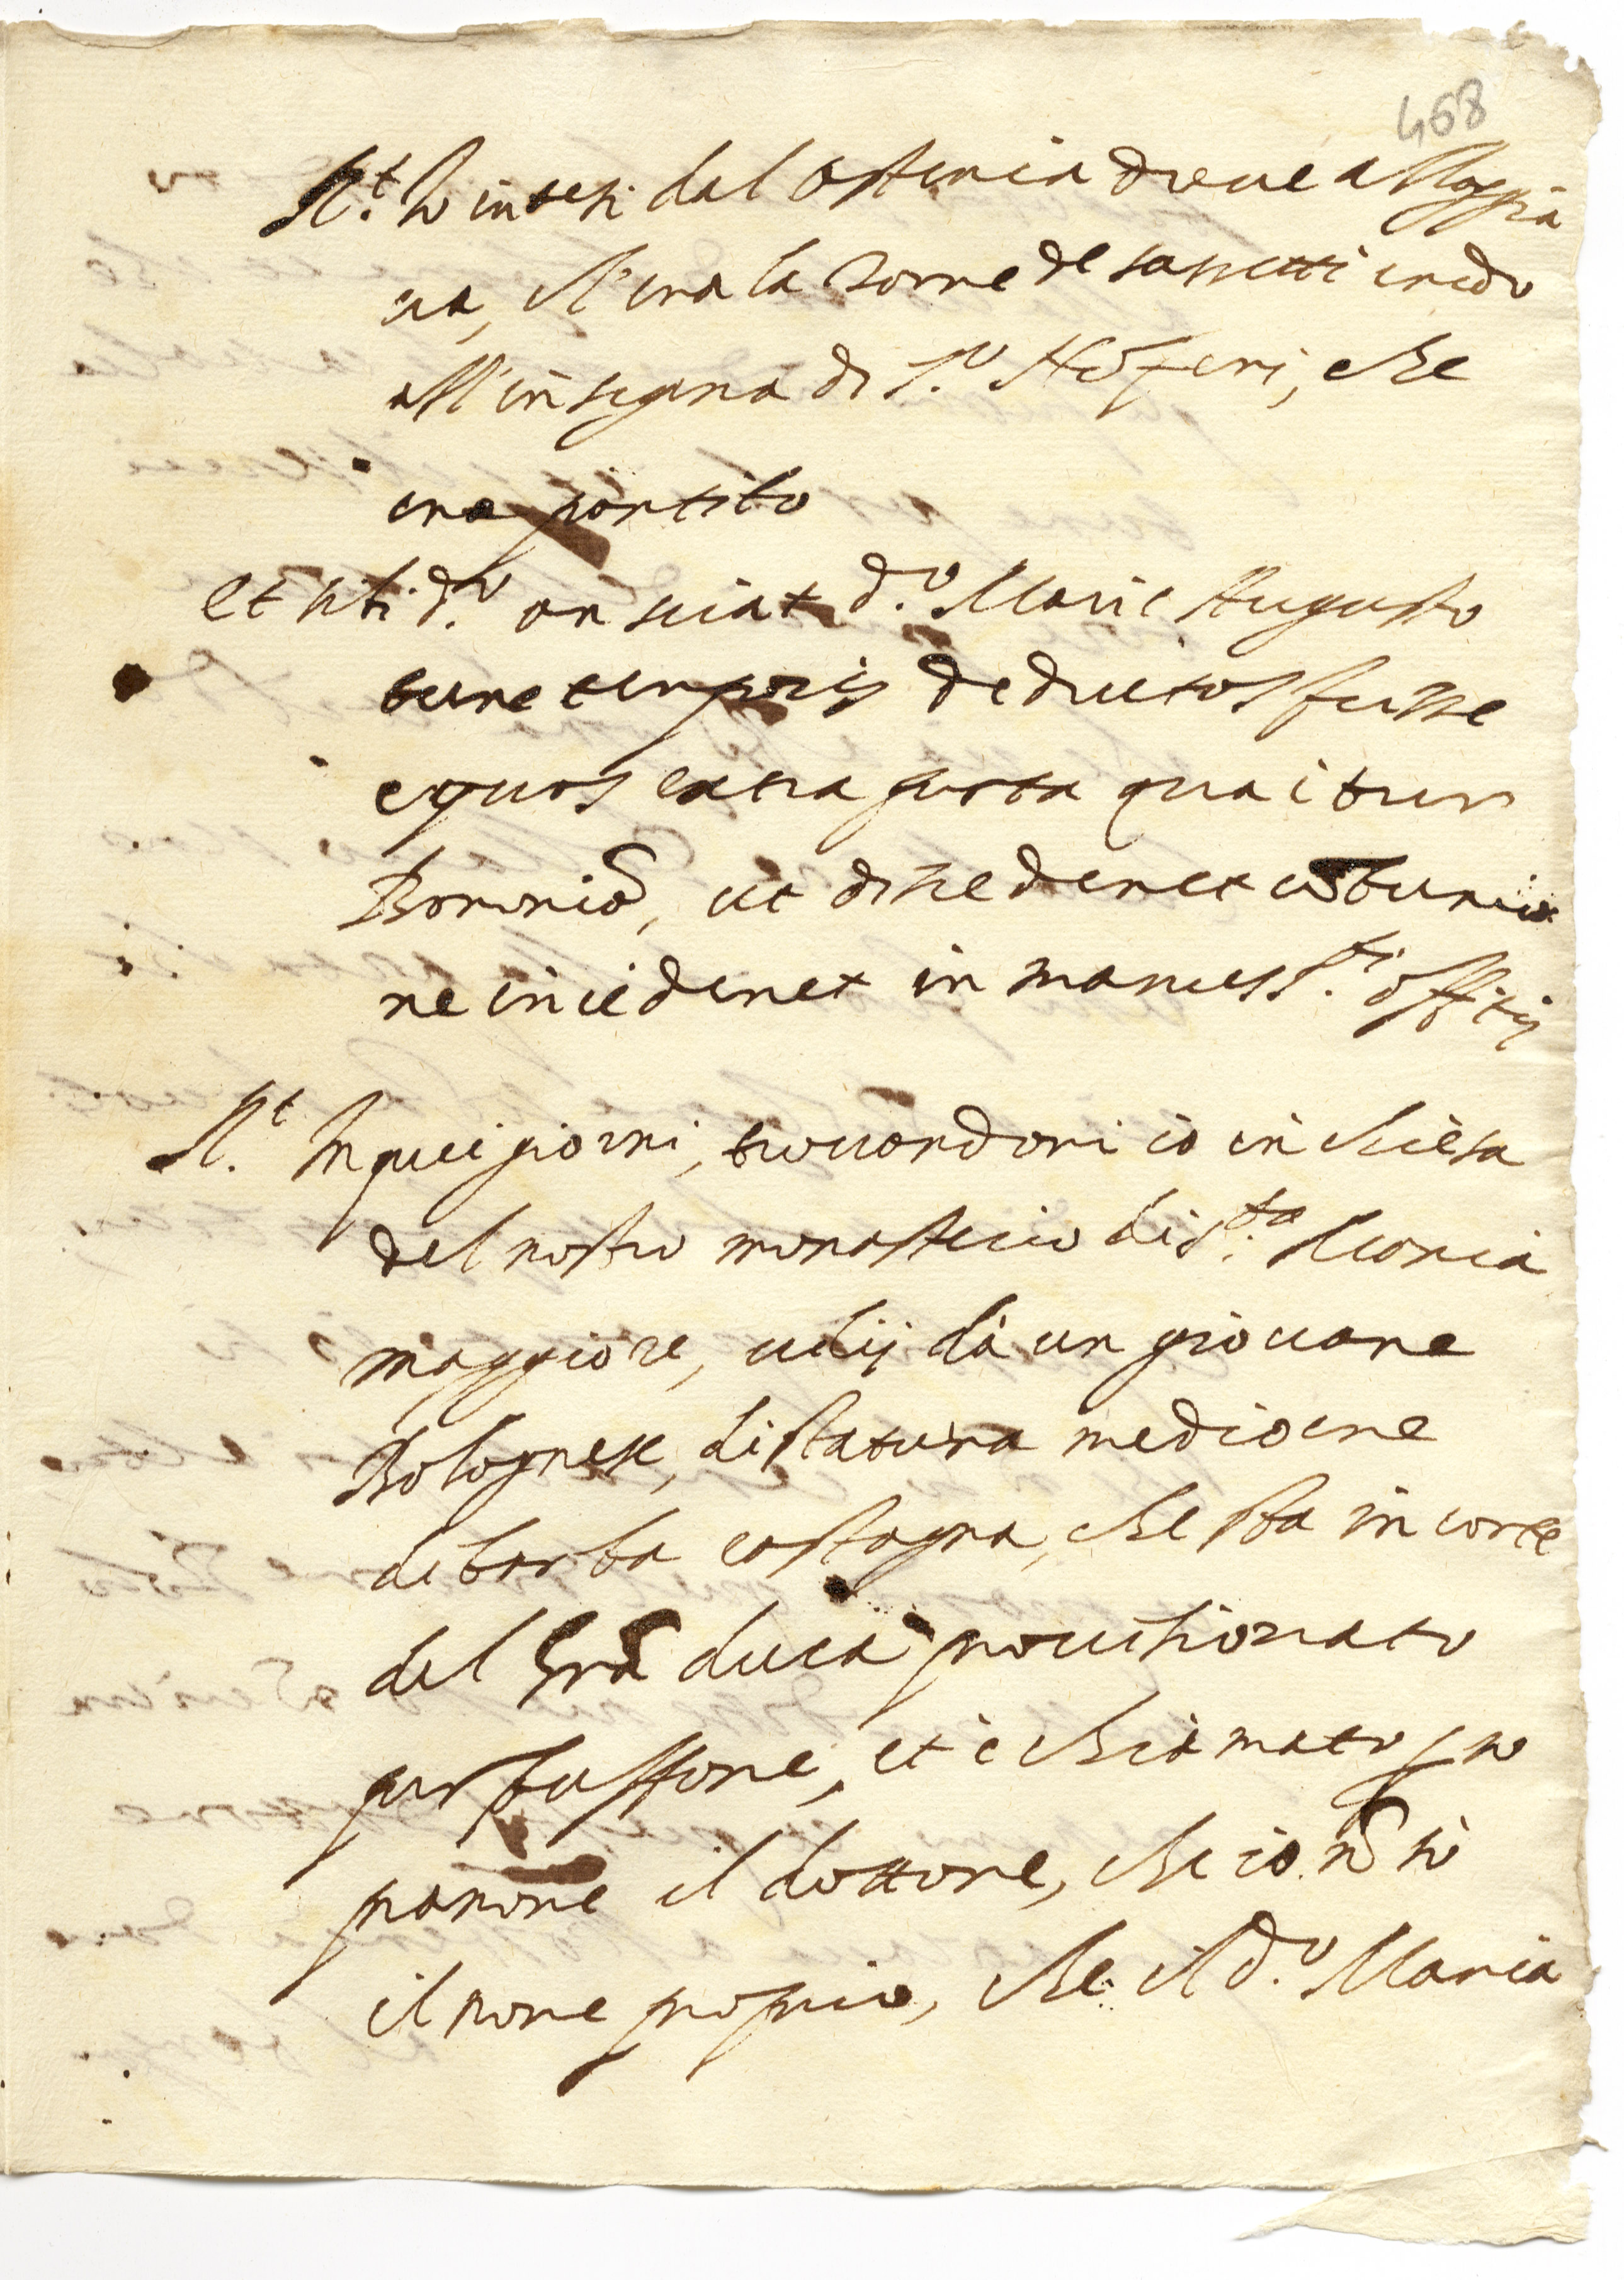 468
R.t Io intesi dal osteria dove alloggia
va, ch'era la Torre de sassetti credo
all'insegna di S.to Hõferi, che
era partito
Et sibi d.o an sciat d.o Marie Augusto
tunc temporis deductos fuisse
equos extra porta qua itur
Bononiã, ut discederet
ne incideret in manus S.ti offitij
R.t In quei giorni, trovandomi io in chiesa
del nostro monasterio di S.ta Maria
maggiore, udij da un giovane
Bolognese, di statura mediocre
di barba castagna, che sta in corte
del Grã duca provisionato
per buffone, et è chiamato per
nome il dottore, che io nõ sò
il nome proprio, che il d.o Maria